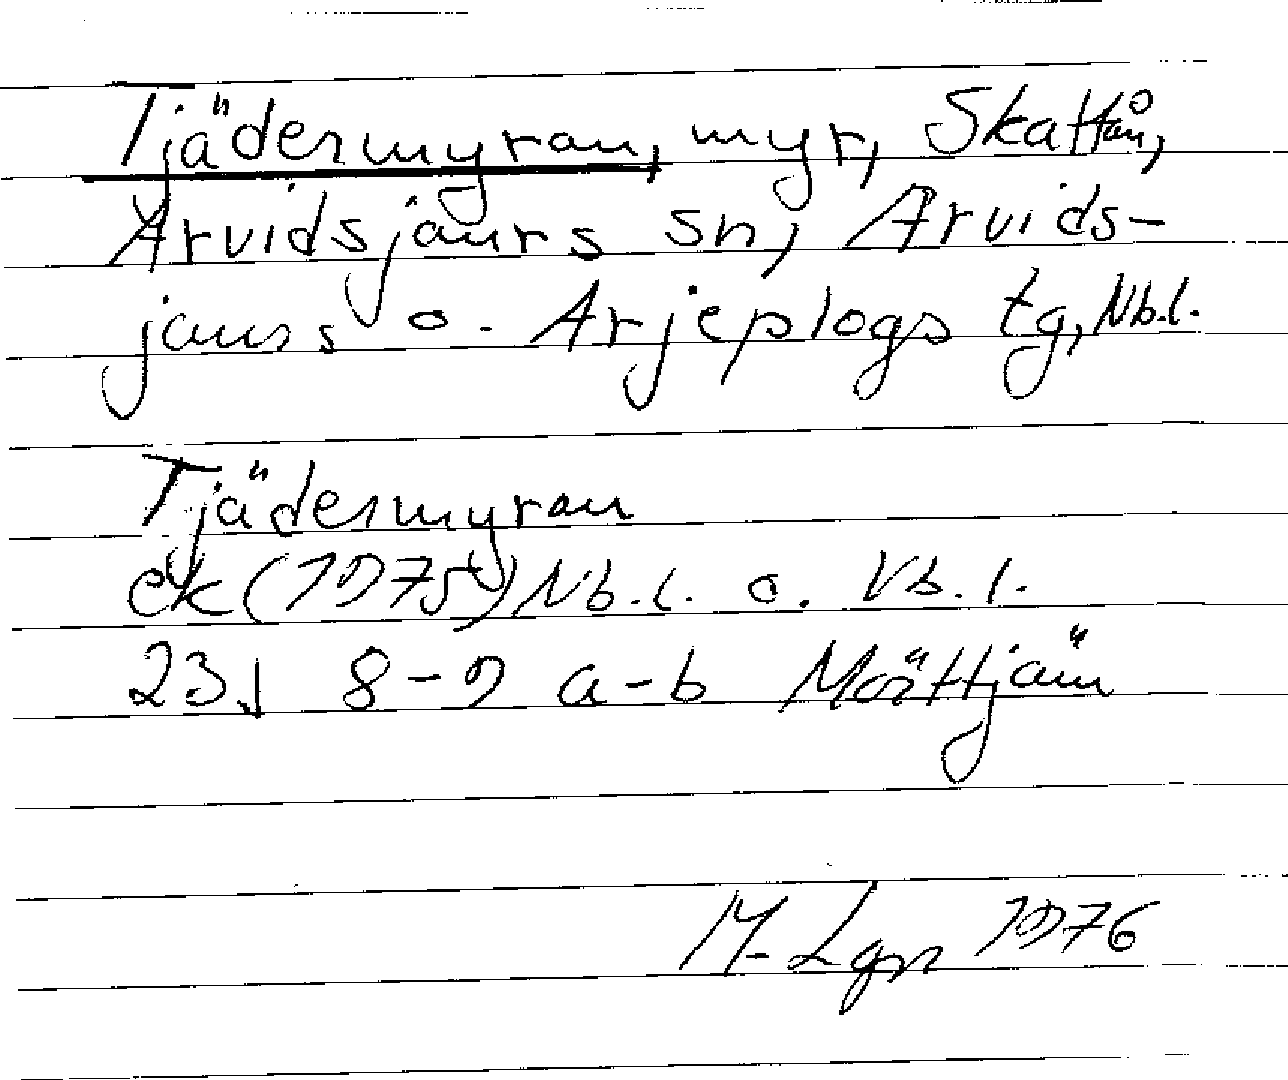 Tjädermyran, myr, Skattån,
Arvidsjaurs sn, Arvids-
jaurs o. Arjeplogs tg, Nb.l.
Tjädermyran
ek (1975) Nb.l. o. Vb.l.
23J 8-9 a-b Mörttjärn
M. Lgn 1976